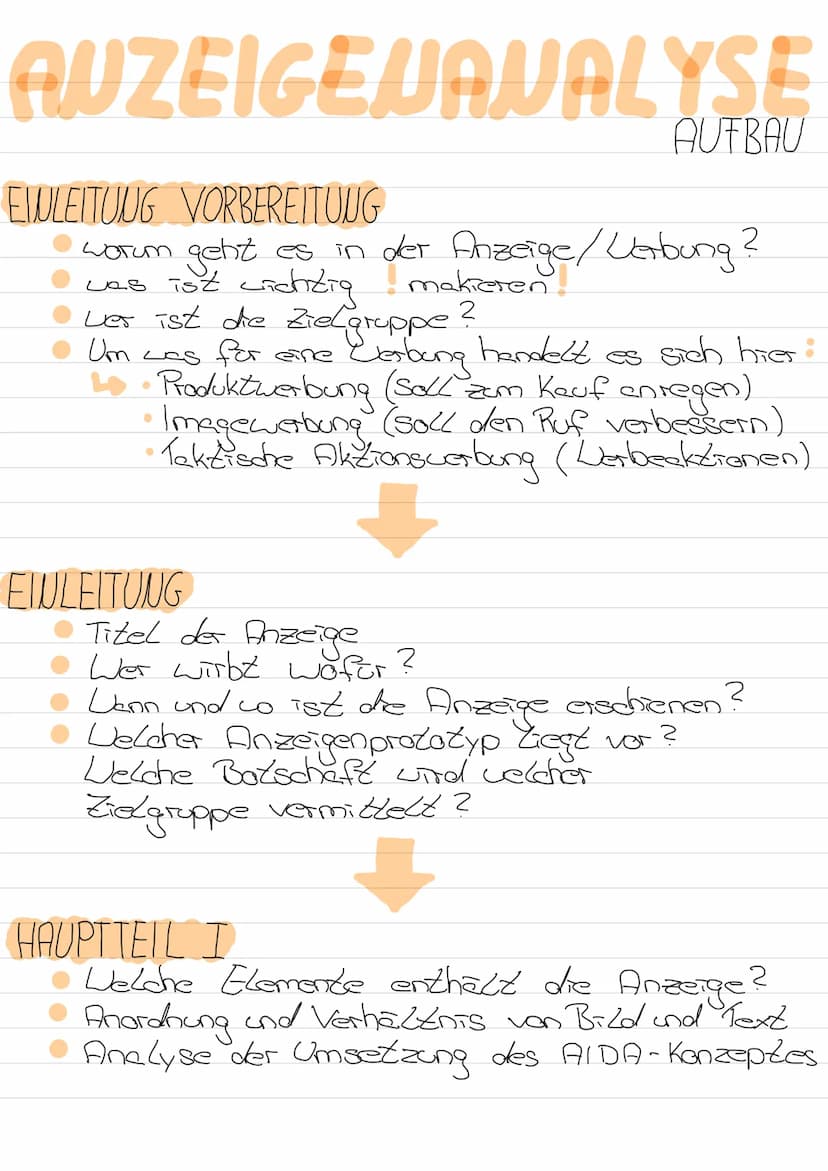 ANZEIGENANALYSE
AUFBAU
EINLEITUNG VORBEREITUNG
worum geht es in der Anzeige/Werbung?
was ist wichtig ! makieren !
wer ist die Zielgruppe?
Um was für eine Werbung handelt es sich hier:
↳ • Produktwerbung (soll zum Kauf anregen)
• Imagewerbung (soll den Ruf verbessern)
• Taktische Aktionswerbung (Werbeaktionen)
EINLEITUNG
Titel der Anzeige
Wer wirbt wofür?
Wann und wo ist die Anzeige erschienen?
Welcher Anzeigenprototyp liegt vor?
Welche Botschaft wird welcher
Zielgruppe vermittelt?
HAUPTTEIL I
Welche Elemente enthält die Anzeige?
Anordnung und Verhältnis von Bild und Text
Analyse der Umsetzung des AIDA-Konzeptes